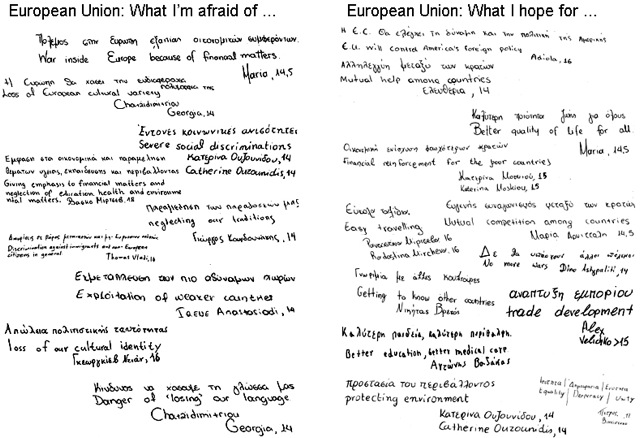 European Union: What I'm afraid of ...
Πόλεμος στην Ευρώπη εξαιτίας οικονομικών συμφερόντων.
War inside Europe because of financial matters.
Maria, 14,5
Η Ευρώπη θα χάσει την
Loss of European cultural variety
Chatzidimitriou
Georgia, 14
Έντονες κοινωνικές ανισότητες
Severe social discriminations
Κατερίνα Ουζουνίδου, 14
Catherine Ouzounidis, 14
Έμφαση στα οικονομικά και παραμέληση
θεμάτων υγείας, εκπαίδευσης και περιβάλλοντος
Giving emphasis to financial matters and
neglection of education health and environme
ntal matters.
Παραμέληση των παραδόσεών μας
neglecting our traditions
Γιώργος
, 14
Discrimination against immigrants and non-European
citizens in general
Thomas Vlahi, 16
Εκμετάλλευση των πιο αδύναμων χωρών
Exploitation of weaker countries
Anastasiadi, 14
Απώλεια πολιτιστικής ταυτότητας
loss of our cultural identity
, 16
Κίνδυνος να χάσουμε τη γλώσσα μας
Danger of "losing" our language
Chatzidimitriou
Georgia, 14
European Union: What I hope for ...
Η Ε.Ε. θα ελέγχει τη δύναμη και την πολιτική της Αμερικής
E.U. will control America's foreign policy
Adiola, 16
Αλληλεγγύη μεταξύ των κρατών
Mutual help among countries
Ελευθερία, 14
Καλύτερη ποιότητα ζωής για όλους
Better quality of life for all.
Maria, 14,5
Οικονομική ενίσχυση φτωχότερων κρατών
Financial reinforcement for the poor countries
Κατερίνα Μοσχιού, 15
Katerina Moskiou, 15
Εύκολο ταξίδι.
Easy travelling
16
Radostina Mircheva, 16
Ευγενής ανταγωνισμός μεταξύ των κρατών
Mutual competition among countries
Μαρία
14,5
Δε θα υπάρχουν άλλοι πόλεμοι
No more wars
Dino
, 14
Γνωριμία με άλλες κουλτούρες
Getting to know other countries
Νικήτας
ανάπτυξη εμπορίου
trade development
Alex
>15
Καλύτερη παιδεία, καλύτερη περίθαλψη.
Better education, better medical care
Αντώνης
προστασία του περιβάλλοντος
protecting environment
Κατερίνα Ουζουνίδου, 14
Catherine Ouzounidis, 14
Ισότητα / Δημοκρατία / Ενότητα
Equality / Democracy / Unity